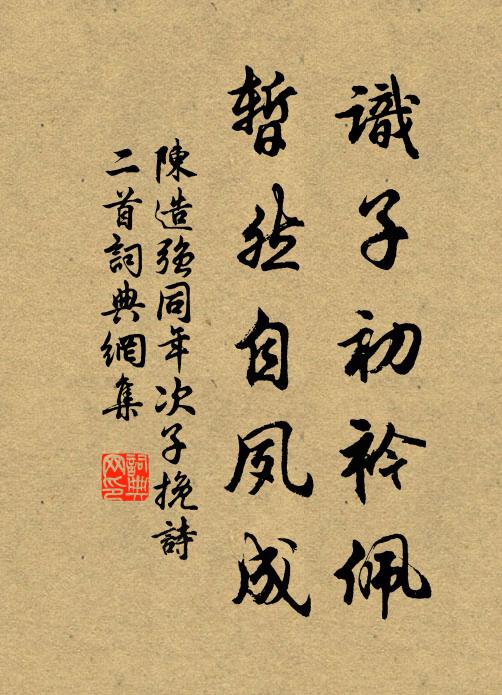 識子初衿佩
暫然自夙成
陳造強同年次子挽詩
二首詞典網集
詞典网印